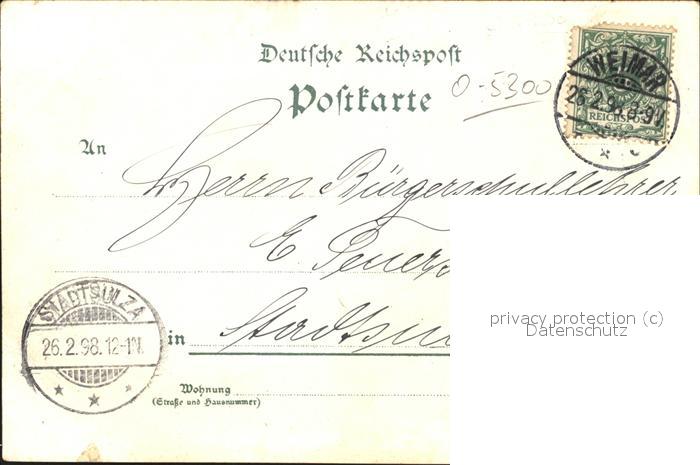 Deutsche Reichspost
Postkarte
0-5300
WEIMAR
26.2.98. 8-9V.
REICHSPOST
An
Herrn Bürgerschullehrer
E.
STADTSULZA
26.2.98.12-1N.
in
Wohnung
(Straße und Hausnummer)
privacy protection (c)
Datenschutz